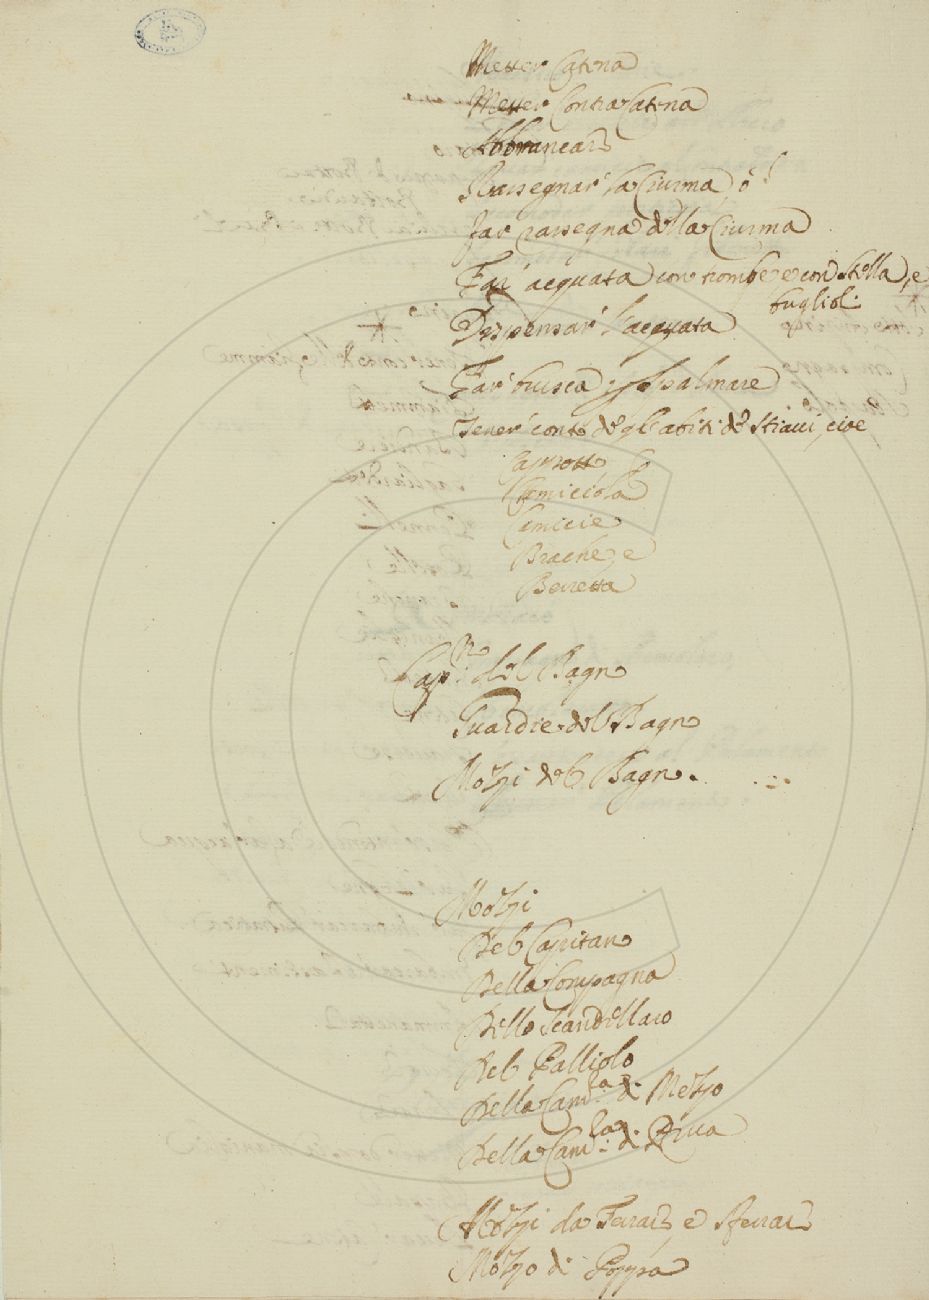 Metter Catena
Metter Contracatena
Abbrancar
Rassegnar la Ciurma ò
far rassegna della Ciurma
Far' acquata con trombe e con Stella, e
buglioli
Dispensar l'acquata
Far brusca, spalmare
Tener conto degl'abiti de Stiavi, cioe
Capotto
Camicciola
Camicie
Brache, e
Berretta
Cap.no del Bagno
Guardie del Bagno
Mozzi del Bagno.
Mozzi
Del Capitano
Della Compagna
Dello Scandellaro
Del Palliolo
Della Cam.ra di Mezzo
Della Cam.ra di Prua
Mozzi da Ferrar, e sferrar
Mozzo di Poppa